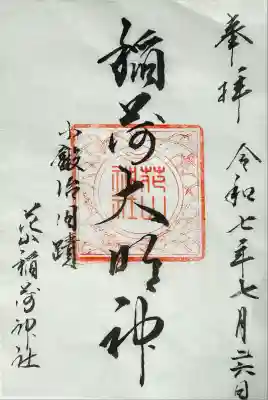 奉拝
令和七年七月廿六日
稲荷大明神
小鍛冶旧蹟
花山稲荷神社
花山
神社